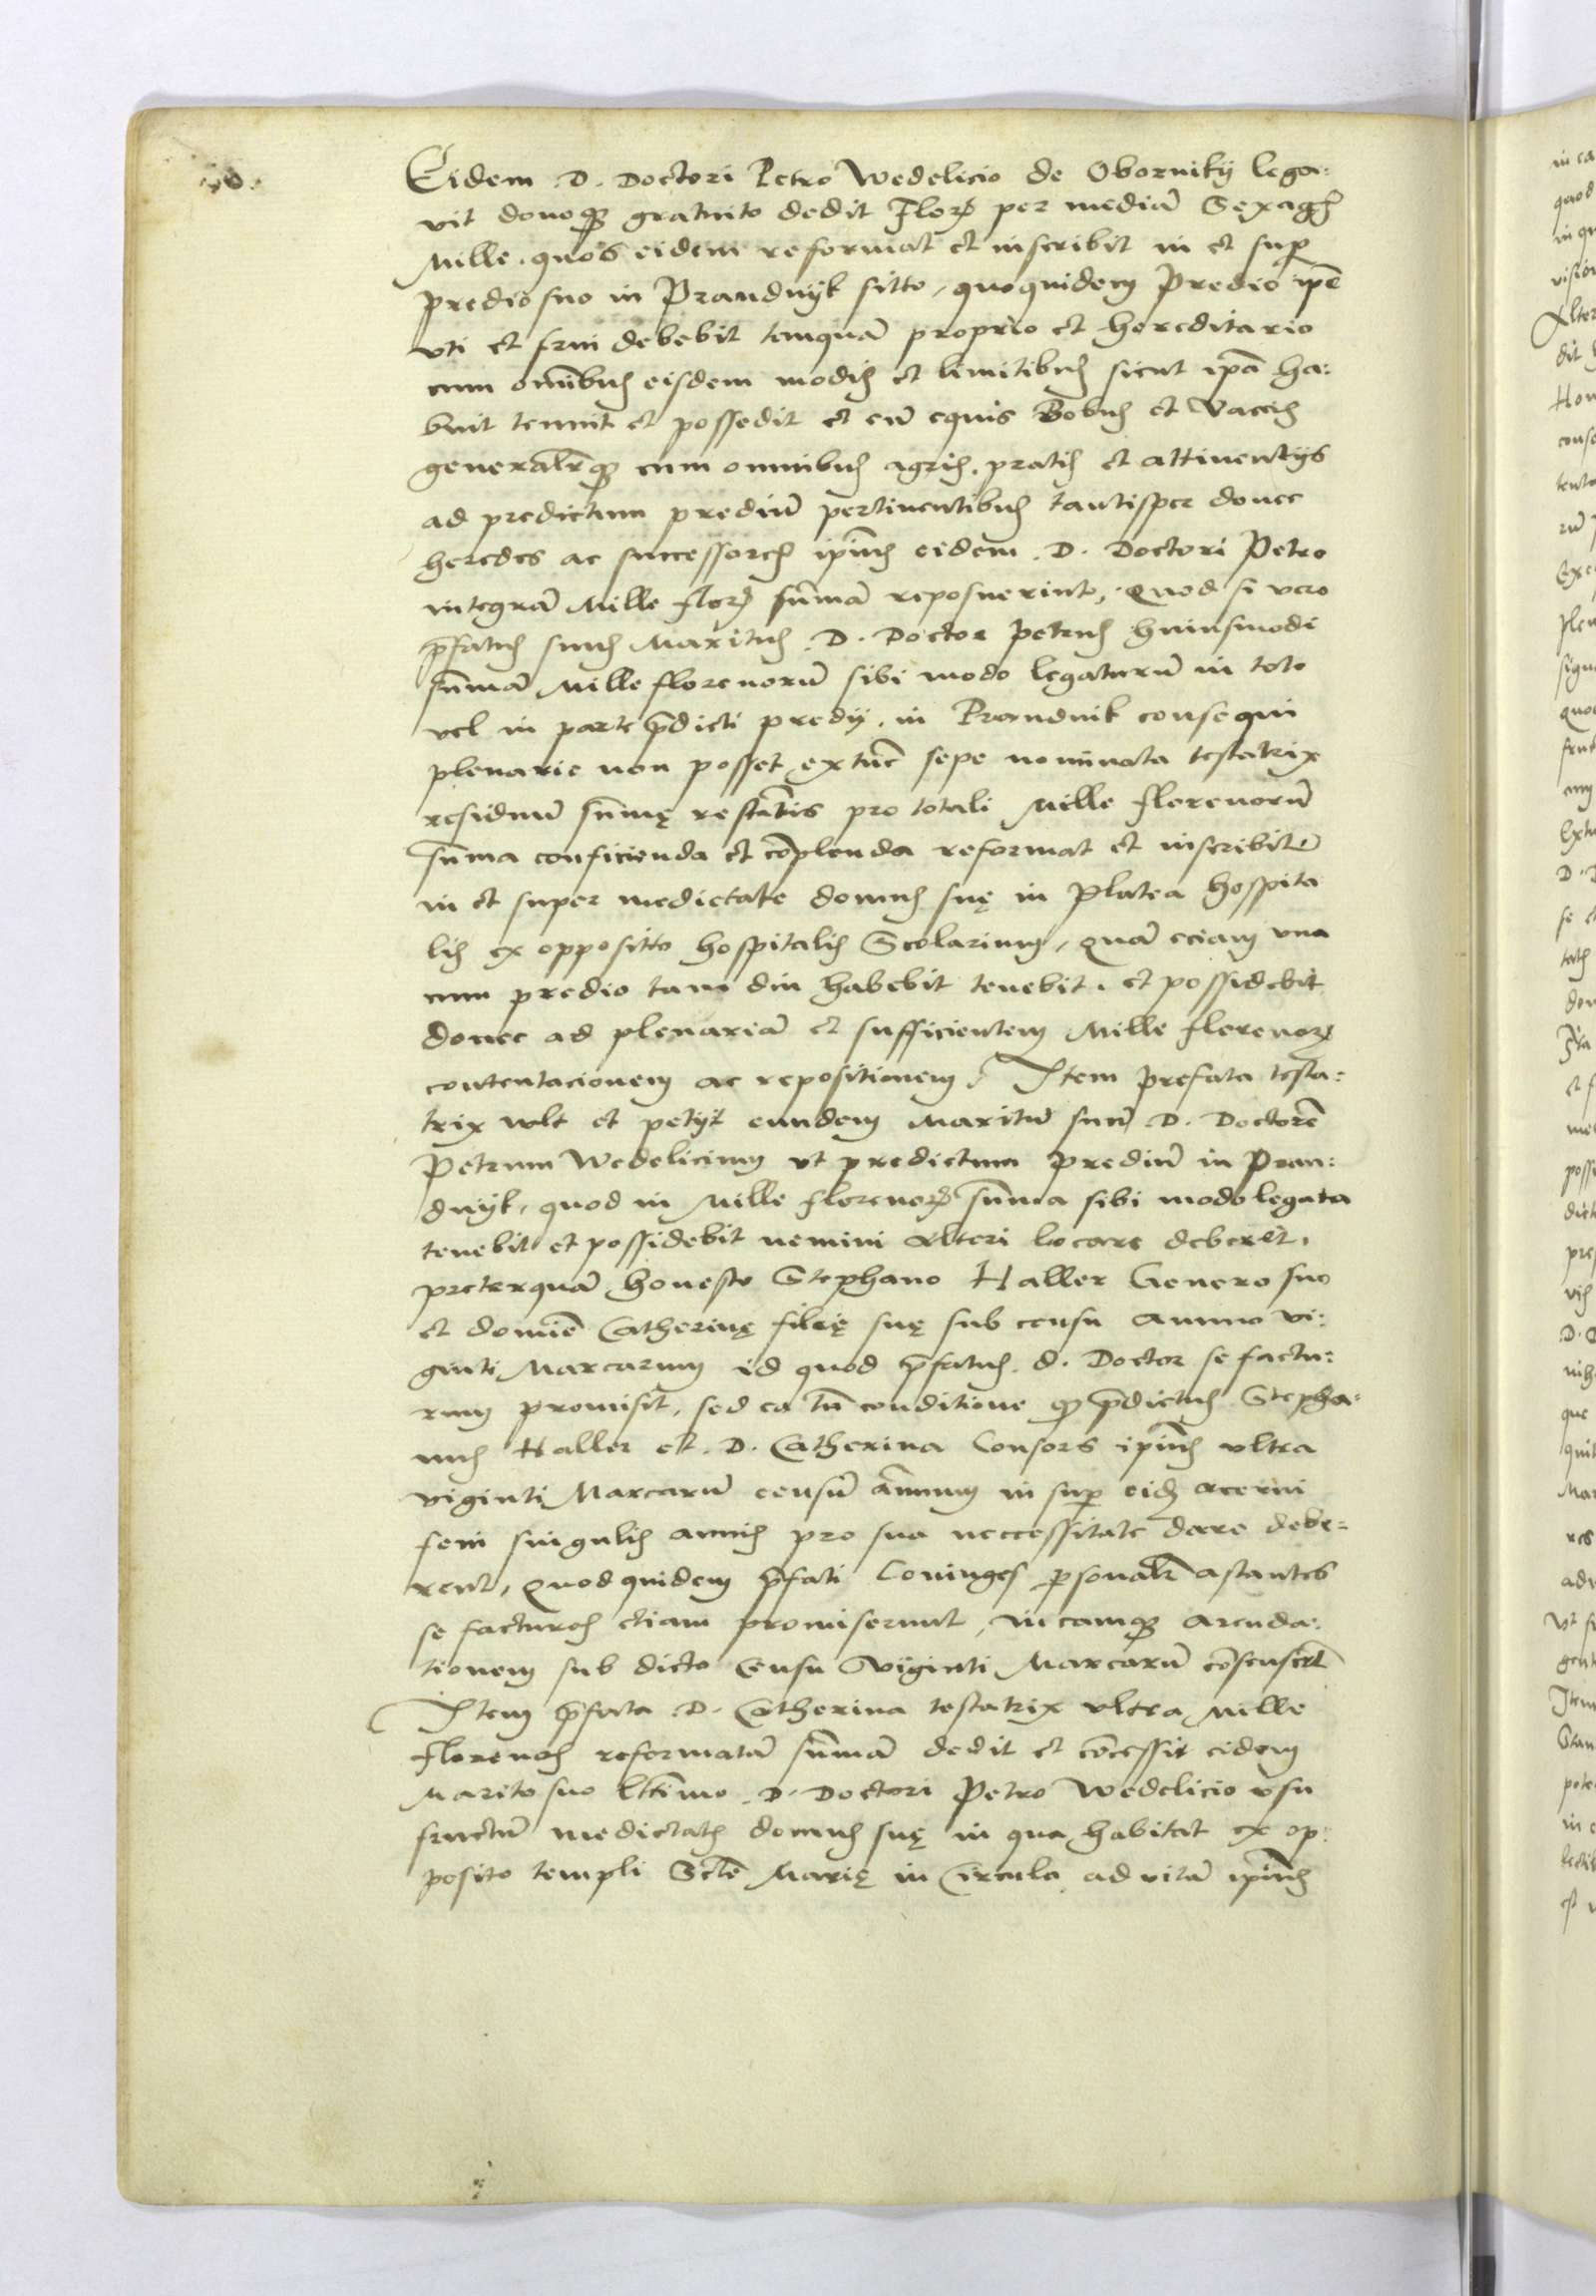 Eidem D. Doctori Petro Wedelicio de Obornikij lega:
vit donoqȝ gratuito dedit Florꝝ per mediā Sexagꝭ
Mille. quos eidem reformat et inscribit in et suꝑ
predio suo in Prandnijk sitto, quoquidem Predio ipē
vti et frui debebit tamquā proprio et hereditario
cum omībuꝭ eisdem modiꝭ et limitibuꝭ sicut ipā ha:
buit tenuit et possedit et cū equis Bobuꝭ et Vacciꝭ
generalrꝭqȝ cum omnibuꝭ agriꝭ. pratiꝭ et attinentijs
ad predictum prediū pertinentibuꝭ tantisper donec
heredes ac successoreꝭ ipīuꝭ eidem D. Doctori Petro
integrā Mille florꝝ sūmā reposuerint, Quod si vero
p̄fatuꝭ suuꝭ Marituꝭ D. Doctor Petruꝭ huiusmodi
sūmā Mille florenorū sibi modo legaturū in toto
vel in parte p̄dicti predij. in Prandnik consequi
plenarie non posset, extūc sepe nominata testatrix
residuū sūmę restātis pro totali Mille florenorū
sūma conficienda et cōplenda reformat et inscribit
in et super medietate domuꝭ suę in Platea hospita
liꝭ ex oppositto hospitaliꝭ Scolarium, quā eciam una
cum predio tam diu habebit tenebit. et possidebit
donec ad plenariā et sufficientem Mille florenorꝝ
contentacionem ac repositionem. Item prefata testa:
trix vult et petijt eundem Maritū suū D. Doctorē
Petrum Wedelicium vt predictum prediū in Pran:
dnijk, quod in Mille florenorꝝ sūma sibi modo legata
tenebit et possidebit nemini Alteri locare deberet.
preterquā honesto Stephano Haller Genero suo
et domīe Catherinę filię suę sub censu annuo vi:
ginti Marcarum id quod p̄fatuꝭ d. Doctor se factu:
rum promisit, sed ea tn̄ conditione qȝ p̄dictuꝭ Stepha:
nuꝭ Haller et D. Catherina Consors ipīuꝭ vltra
viginti Marcarū censū annuum in suꝑ eidꝫ acervi
feni singuliꝭ anniꝭ pro sua neccessitate dare debe:
rent, Quod quidem p̄fati Coniuges ꝑsonalr̄ astantes
se facturoꝭ etiam promiserunt, in eamqȝ arenda:
tionem sub dicto Censu Viginti Marcarū cōsenserūt
Item p̄fata D. Catherina testatrix vltra Mille
florenoꝭ reformatā sūmā dedit et cōcessit eidem
Marito suo lttimo D. Doctori Petro Wedelicio vsu
fructū medietatꝭ domuꝭ suę in qua habitat ex op:
posito templi Sctē Marię in Circulo ad vitā ipīuꝭ